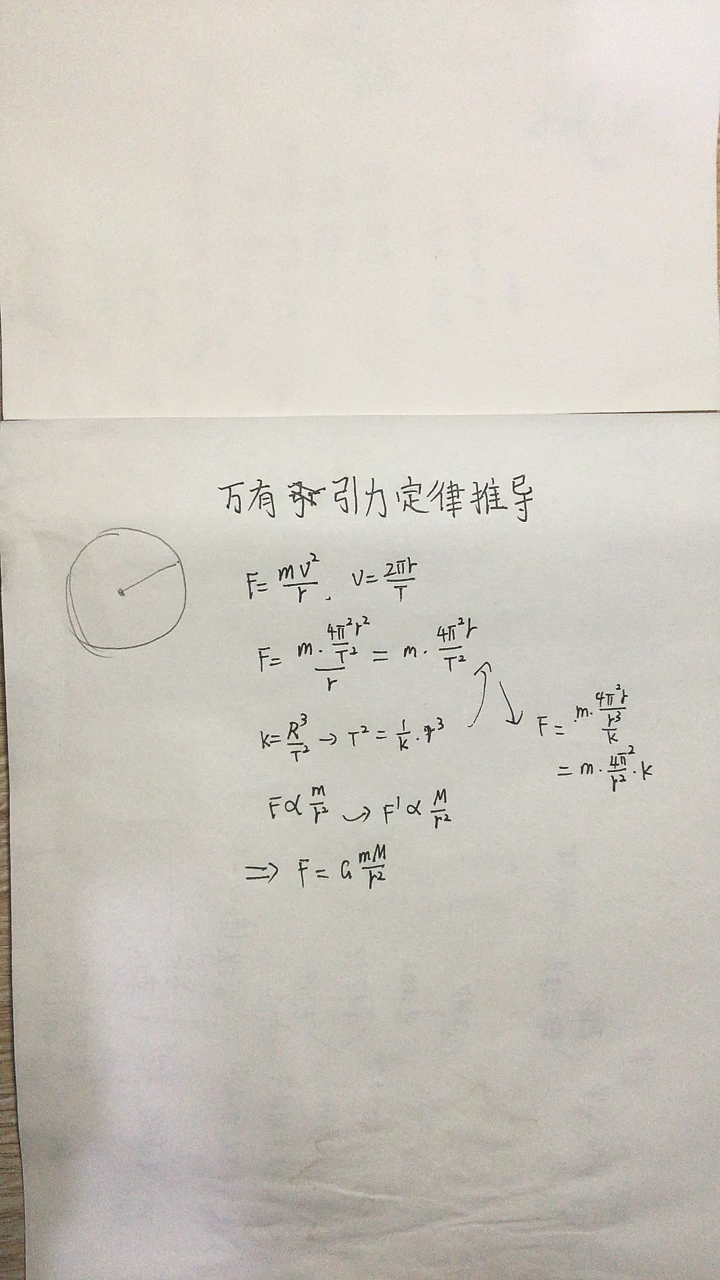 万有引力定律推导
F = mv²/r, v = 2πr/T
F = (m · 4π²r²/T²)/r = m · 4π²r/T²
k = R³/T² → T² = 1/k · r³
F = m · 4π²r/(r³/k)
= m · 4π²/r² · k
F ∝ m/r² → F' ∝ M/r²
⇒ F = G mM/r²